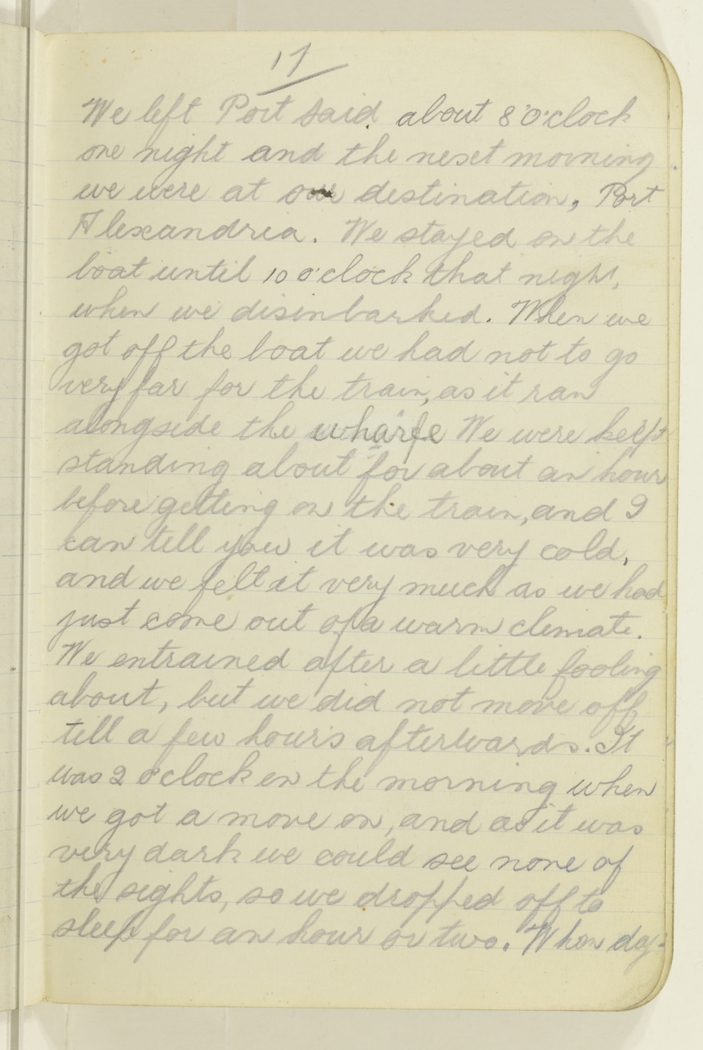 17
We left Port Said about 8 o'clock
one night and the next morning
we were at our destination, Port
Alexandria. We stayed on the
boat until 10 o'clock that night,
when we disinbarked. When we
got off the boat we had not to go
very far for the train, as it ran
alongside the wharfe We were kelpt
standing about for about an hour
before getting on the train, and I
can tell you it was very cold,
and we felt it very much as we had
just come out of a warm climate.
We entrained after a little fooling
about, but we did not move off
till a few hours afterwards. It
was 2 o'clock in the morning when
we got a move on, and as it was
very dark we could see none of
the sights, so we dropped off to
sleep for an hour or two. When day-